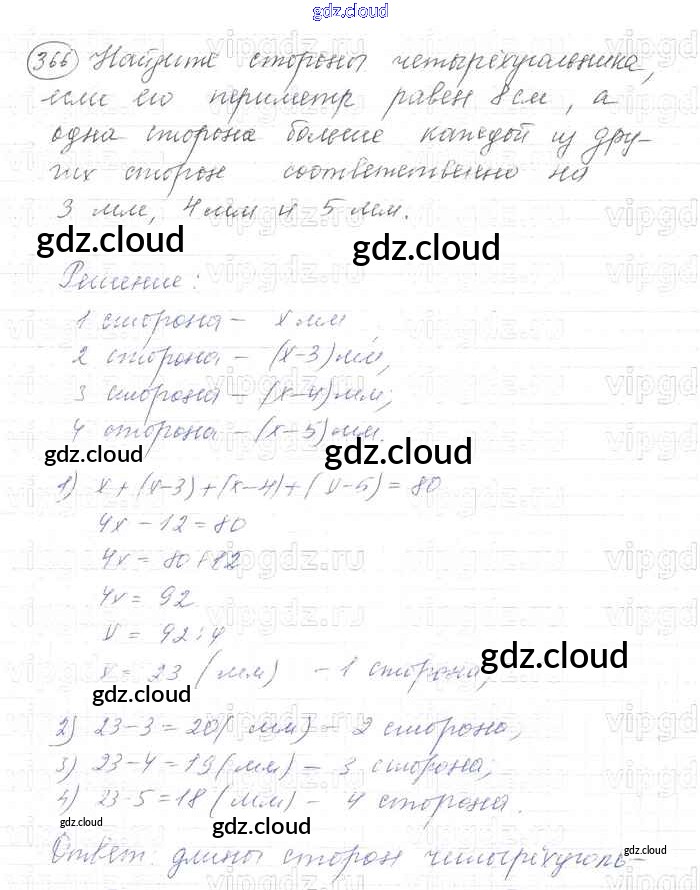 gdz.cloud
366 Найдите стороны четырёхугольника,
если его периметр равен 8 см, а
одна сторона больше каждой из дру-
гих сторон соответственно на
3 мм, 4 мм и 5 мм.
gdz.cloud gdz.cloud
Решение:
1 сторона – x мм,
2 сторона – (x-3) мм,
3 сторона – (x-4) мм;
4 сторона – (x-5) мм.
gdz.cloud gdz.cloud
1) x + (x-3) + (x-4) + (x-5) = 80
4x - 12 = 80
4x = 80 + 12
4x = 92
x = 92 : 4
gdz.cloud
x = 23 (мм) – 1 сторона,
gdz.cloud
2) 23-3 = 20 (мм) – 2 сторона,
3) 23-4 = 19 (мм) – 3 сторона;
4) 23-5 = 18 (мм) – 4 сторона.
gdz.cloud gdz.cloud gdz.cloud
Ответ: длины сторон четырёхуголь-